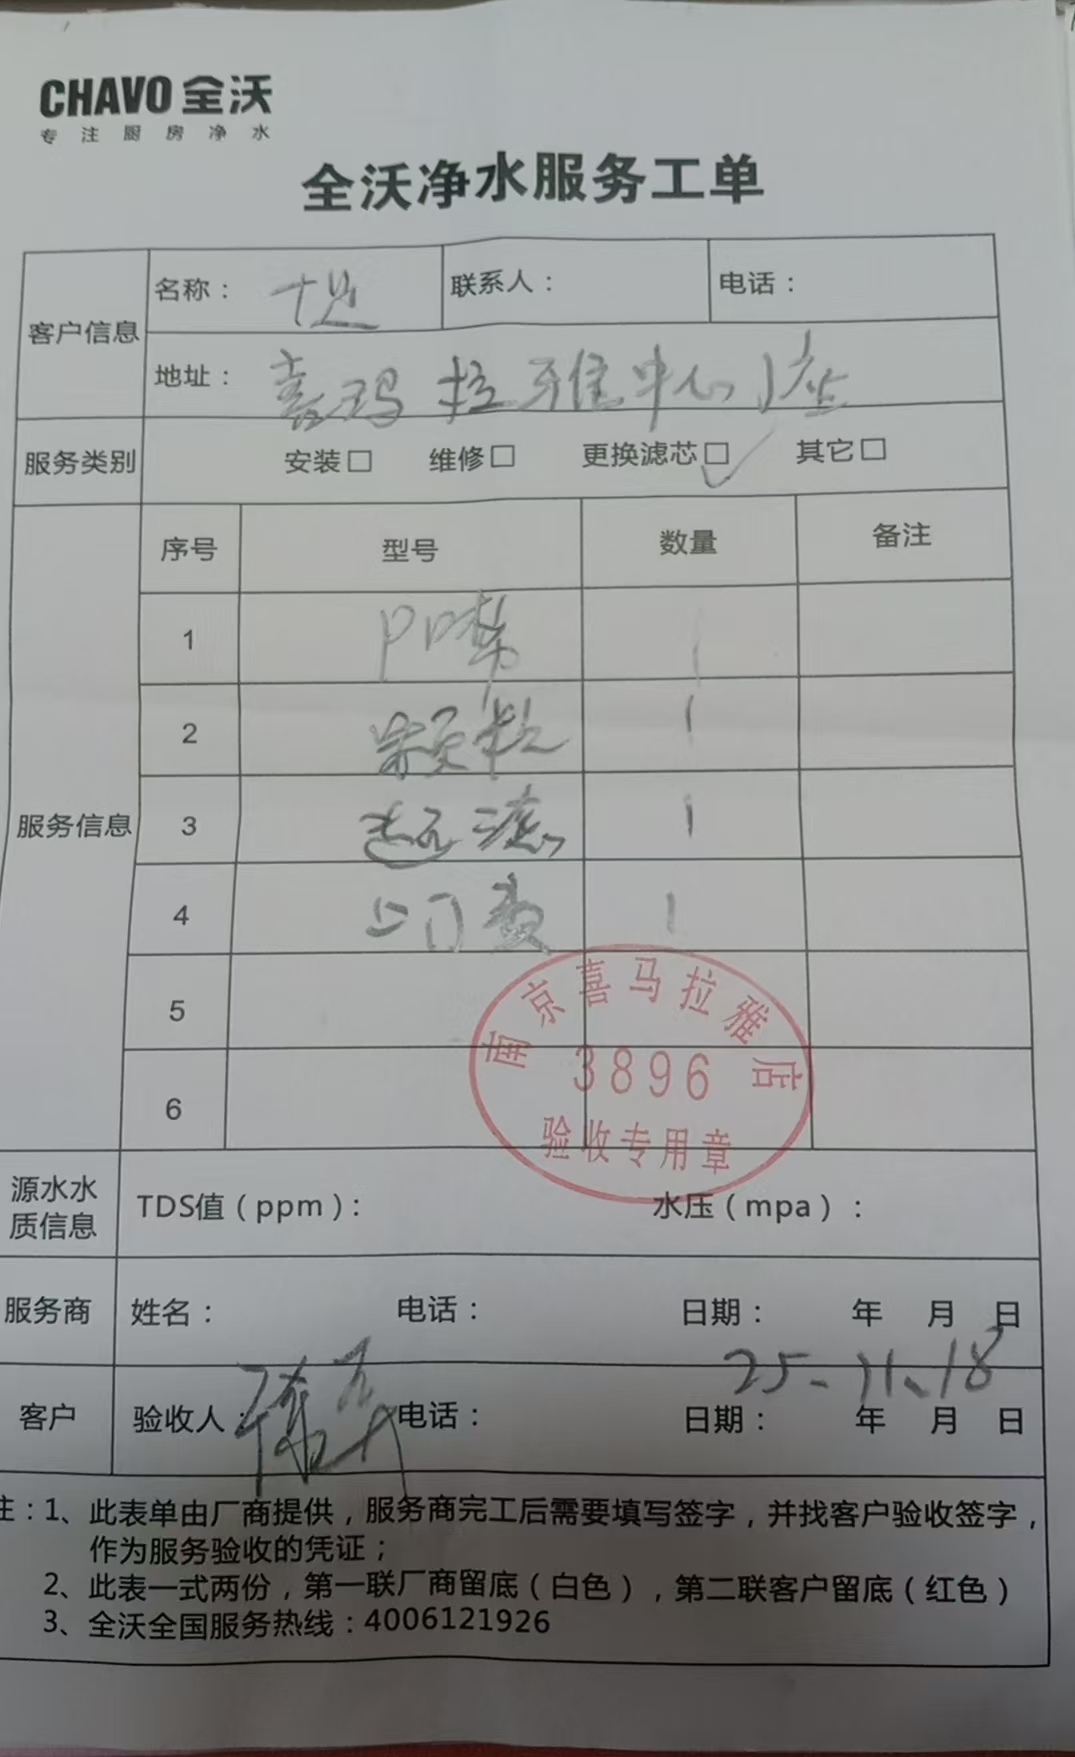 CHAVO 全沃
专注厨房净水
全沃净水服务工单
客户信息
名称： 十足
联系人：
电话：
地址： 喜玛拉雅中心J座
服务类别
安装□ 维修□ 更换滤芯□✓ 其它□
服务信息
序号 型号 数量 备注
1 PP棉 1
2 颗粒 1
3 超滤 1
4 上门费 1
5
6
南京喜马拉雅店
3896
验收专用章
源水水质信息
TDS值（ppm）： 水压（mpa）：
服务商
姓名： 电话： 日期： 年 月 日
25.11.18
客户
验收人： 电话： 日期： 年 月 日
注：1、此表单由厂商提供，服务商完工后需要填写签字，并找客户验收签字，
作为服务验收的凭证；
2、此表一式两份，第一联厂商留底（白色），第二联客户留底（红色）
3、全沃全国服务热线：4006121926